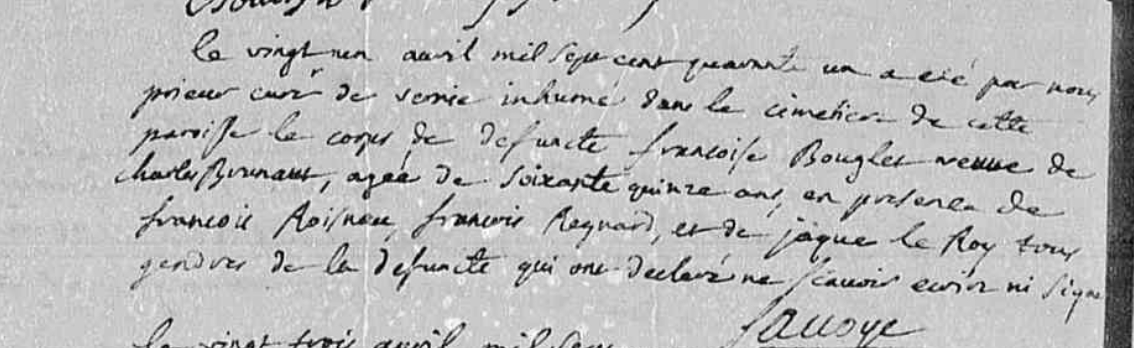 le vingt un avril mil sept cent quarante un a eté par nous
prieur curé de inhumé dans le cimetiere de cette
paroisse le corps de defuncte francoise Bouglet veuve de
charles Brunaut, agée de soixante quinze ans, en presence de
francois Roisneau, francois Regnard, et de jaque le Roy tous
gendres de la defuncte qui ont declaré ne scavoir ecrire ni signe
le vingt trois avril mil sept